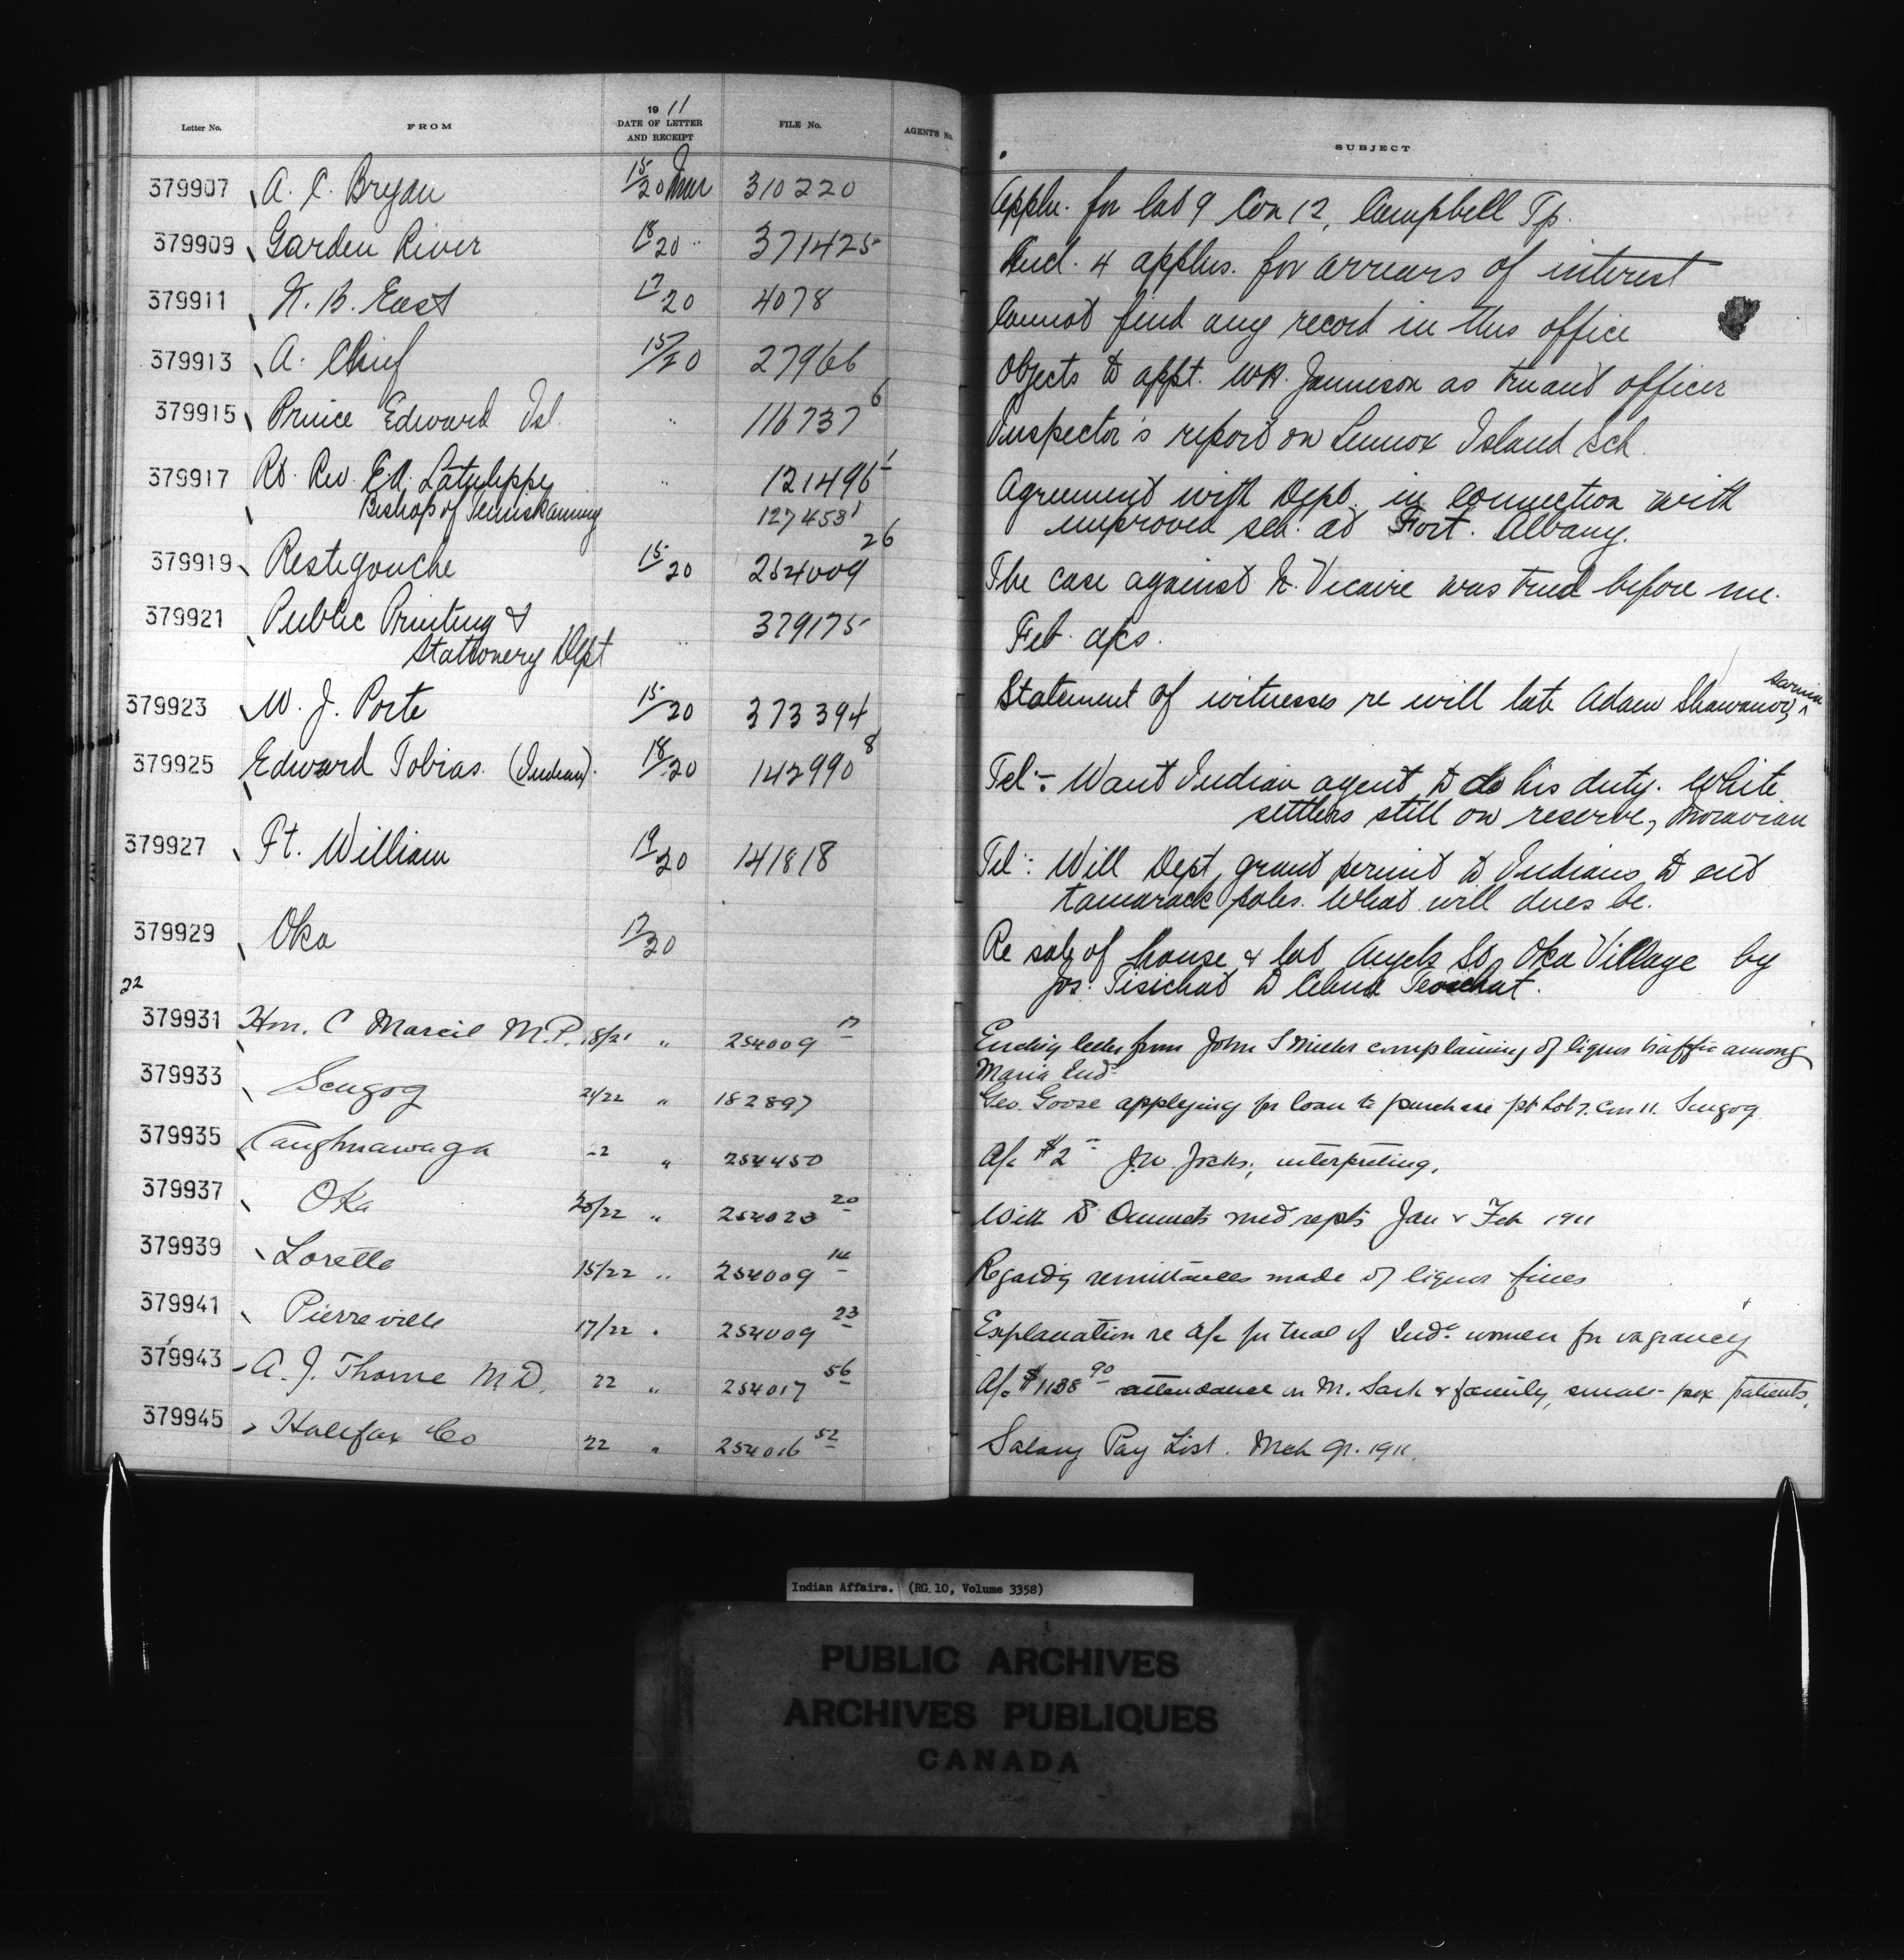 Letter No. FROM 1911 DATE OF LETTER AND RECEIPT FILE No. AGENT'S No. SUBJECT
379907 A. C. Bryan 15/20 Mar 310220 Appln. for lot 9 Con 12, Campbell Tp.
379909 Garden River 18/20 " 371425 Encl. 4 applns. for arrears of interest
379911 N. B. East 17/20 4078 Cannot find any record in this office
379913 A. Chief 15/20 27966 Objects to appt. W.H. Jamieson as truant officer
379915 Prince Edward Isl. " 116737 6 Inspector's report on Lennox Island Sch.
379917 Rt. Rev. E.A. Latulippe " 121496 1 Agreement with Dept. in connection with
Bishop of Temiskaming 127453 1 improved sch. at Fort. Albany.
379919 Restigouche 15/20 254009 26 The case against N. Vicaire was tried before me.
379921 Public Printing & " 379175 Feb. a/cs.
Stationery Dept
379923 W. J. Porte 15/20 373394 Statement of witnesses re will late Adam Shawanoo, Sarnia
379925 Edward Tobias. (Indian). 18/20 142990 8 Tel:- Want Indian agent to do his duty. White
settlers still on reserve, Moravian
379927 Ft. William 19/20 141818 Tel: Will Dept. grant permit to Indians to cut
tamarack poles. What will dues be.
379929 Oka 17/20 Re sale of house & lot Angels St, Oka Village by
Jos. Tisichat to
22
379931 Hon. C Marcil M.P. 18/21 " 254009 17 Encloig letter from John complaining of liquor traffic among
Maria Inds
379933 Scugog 21/22 " 182897 Geo. Goose applying for loan to purchase pt Lot 7. Con 11. Scugog
379935 Caughnawaga 22 " 254450 A/c $2 J.W. Jocks, interpreting.
379937 Oka 20/22 " 254023 20 With D med repts Jan & Feb 1911
379939 Lorette 15/22 " 254009 14 Regardg remittances made of liquor fines
379941 Pierreville 17/22 " 254009 23 Explanation re a/c for trial of Inds. women for vagrancy
379943 A. J. Thorne M.D. 22 " 254017 56 A/c $1138 90 attendance on M. Sark & family, small-pox patients,
379945 Halifax Co 22 " 254016 52 Salary Pay List. Mch qr. 1911.
Indian Affairs. (RG 10, Volume 3358)
PUBLIC ARCHIVES
ARCHIVES PUBLIQUES
CANADA